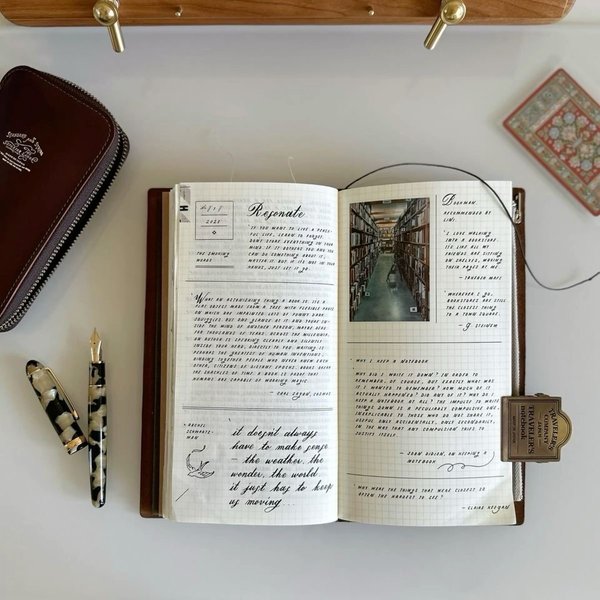 Resonate
2025
THE SMOKING
WORDS
'IF YOU WANT TO LIVE A PEACE-
FUL LIFE, LEARN TO FORGET.
DON'T STORE EVERYTHING IN YOUR
MIND. IF IT BOTHERS YOU AND YOU
CAN DO SOMETHING ABOUT IT,
MASTER IT. BUT IF IT'S NOT IN YOUR
HANDS, JUST LET IT GO.
'WHAT AN ASTONISHING THING A BOOK IS. IT'S A
FLAT OBJECT MADE FROM A TREE WITH FLEXIBLE PARTS
ON WHICH ARE IMPRINTED LOTS OF FUNNY DARK
SQUIGGLES. BUT ONE GLANCE AT IT AND YOU'RE IN-
SIDE THE MIND OF ANOTHER PERSON, MAYBE DEAD
FOR THOUSANDS OF YEARS. ACROSS THE MILLENNIA,
AN AUTHOR IS SPEAKING CLEARLY AND SILENTLY
INSIDE YOUR HEAD, DIRECTLY TO YOU. WRITING IS
PERHAPS THE GREATEST OF HUMAN INVENTIONS,
BINDING TOGETHER PEOPLE WHO NEVER KNEW EACH
OTHER, CITIZENS OF DISTANT EPOCHS. BOOKS BREAK
THE SHACKLES OF TIME. A BOOK IS PROOF THAT
HUMANS ARE CAPABLE OF WORKING MAGIC.
- CARL SAGAN, COSMOS
- RACHEL
SCHWARTZ-
MAN
'it doesn't always
have to make sense
- the weather, the
wonder, the world
it just has to keep
us moving...
Bookman.
RECOMMENDED BY
LINE.
'I LOVE WALKING
INTO A BOOKSTORE.
IT'S LIKE ALL MY
FRIENDS ARE SITTING
ON SHELVES, WAVING
THEIR PAGES AT ME.
- TAHEREH MAFI
'WHEREVER I GO,
BOOKSTORES ARE STILL
THE CLOSEST THING
TO A TOWN SQUARE.
- G. STEINEM
WHY I KEEP A NOTEBOOK
'WHY DID I WRITE IT DOWN? IN ORDER TO
REMEMBER, OF COURSE, BUT EXACTLY WHAT WAS
IT I WANTED TO REMEMBER? HOW MUCH OF IT
ACTUALLY HAPPENED? DID ANY OF IT? WHY DO I
KEEP A NOTEBOOK AT ALL? THE IMPULSE TO WRITE
THINGS DOWN IS A PECULIARLY COMPULSIVE ONE,
INEXPLICABLE TO THOSE WHO DO NOT SHARE IT,
USEFUL ONLY ACCIDENTALLY, ONLY SECONDARILY,
IN THE WAY THAT ANY COMPULSION TRIES TO
JUSTIFY ITSELF.
- JOAN DIDION, ON KEEPING A
NOTEBOOK
'WHY WERE THE THINGS THAT WERE CLOSEST SO
OFTEN THE HARDEST TO SEE?
- CLAIRE KEEGAN
TRAVELER'S
COMPANY
JAPAN
TRAVELER'S
notebook